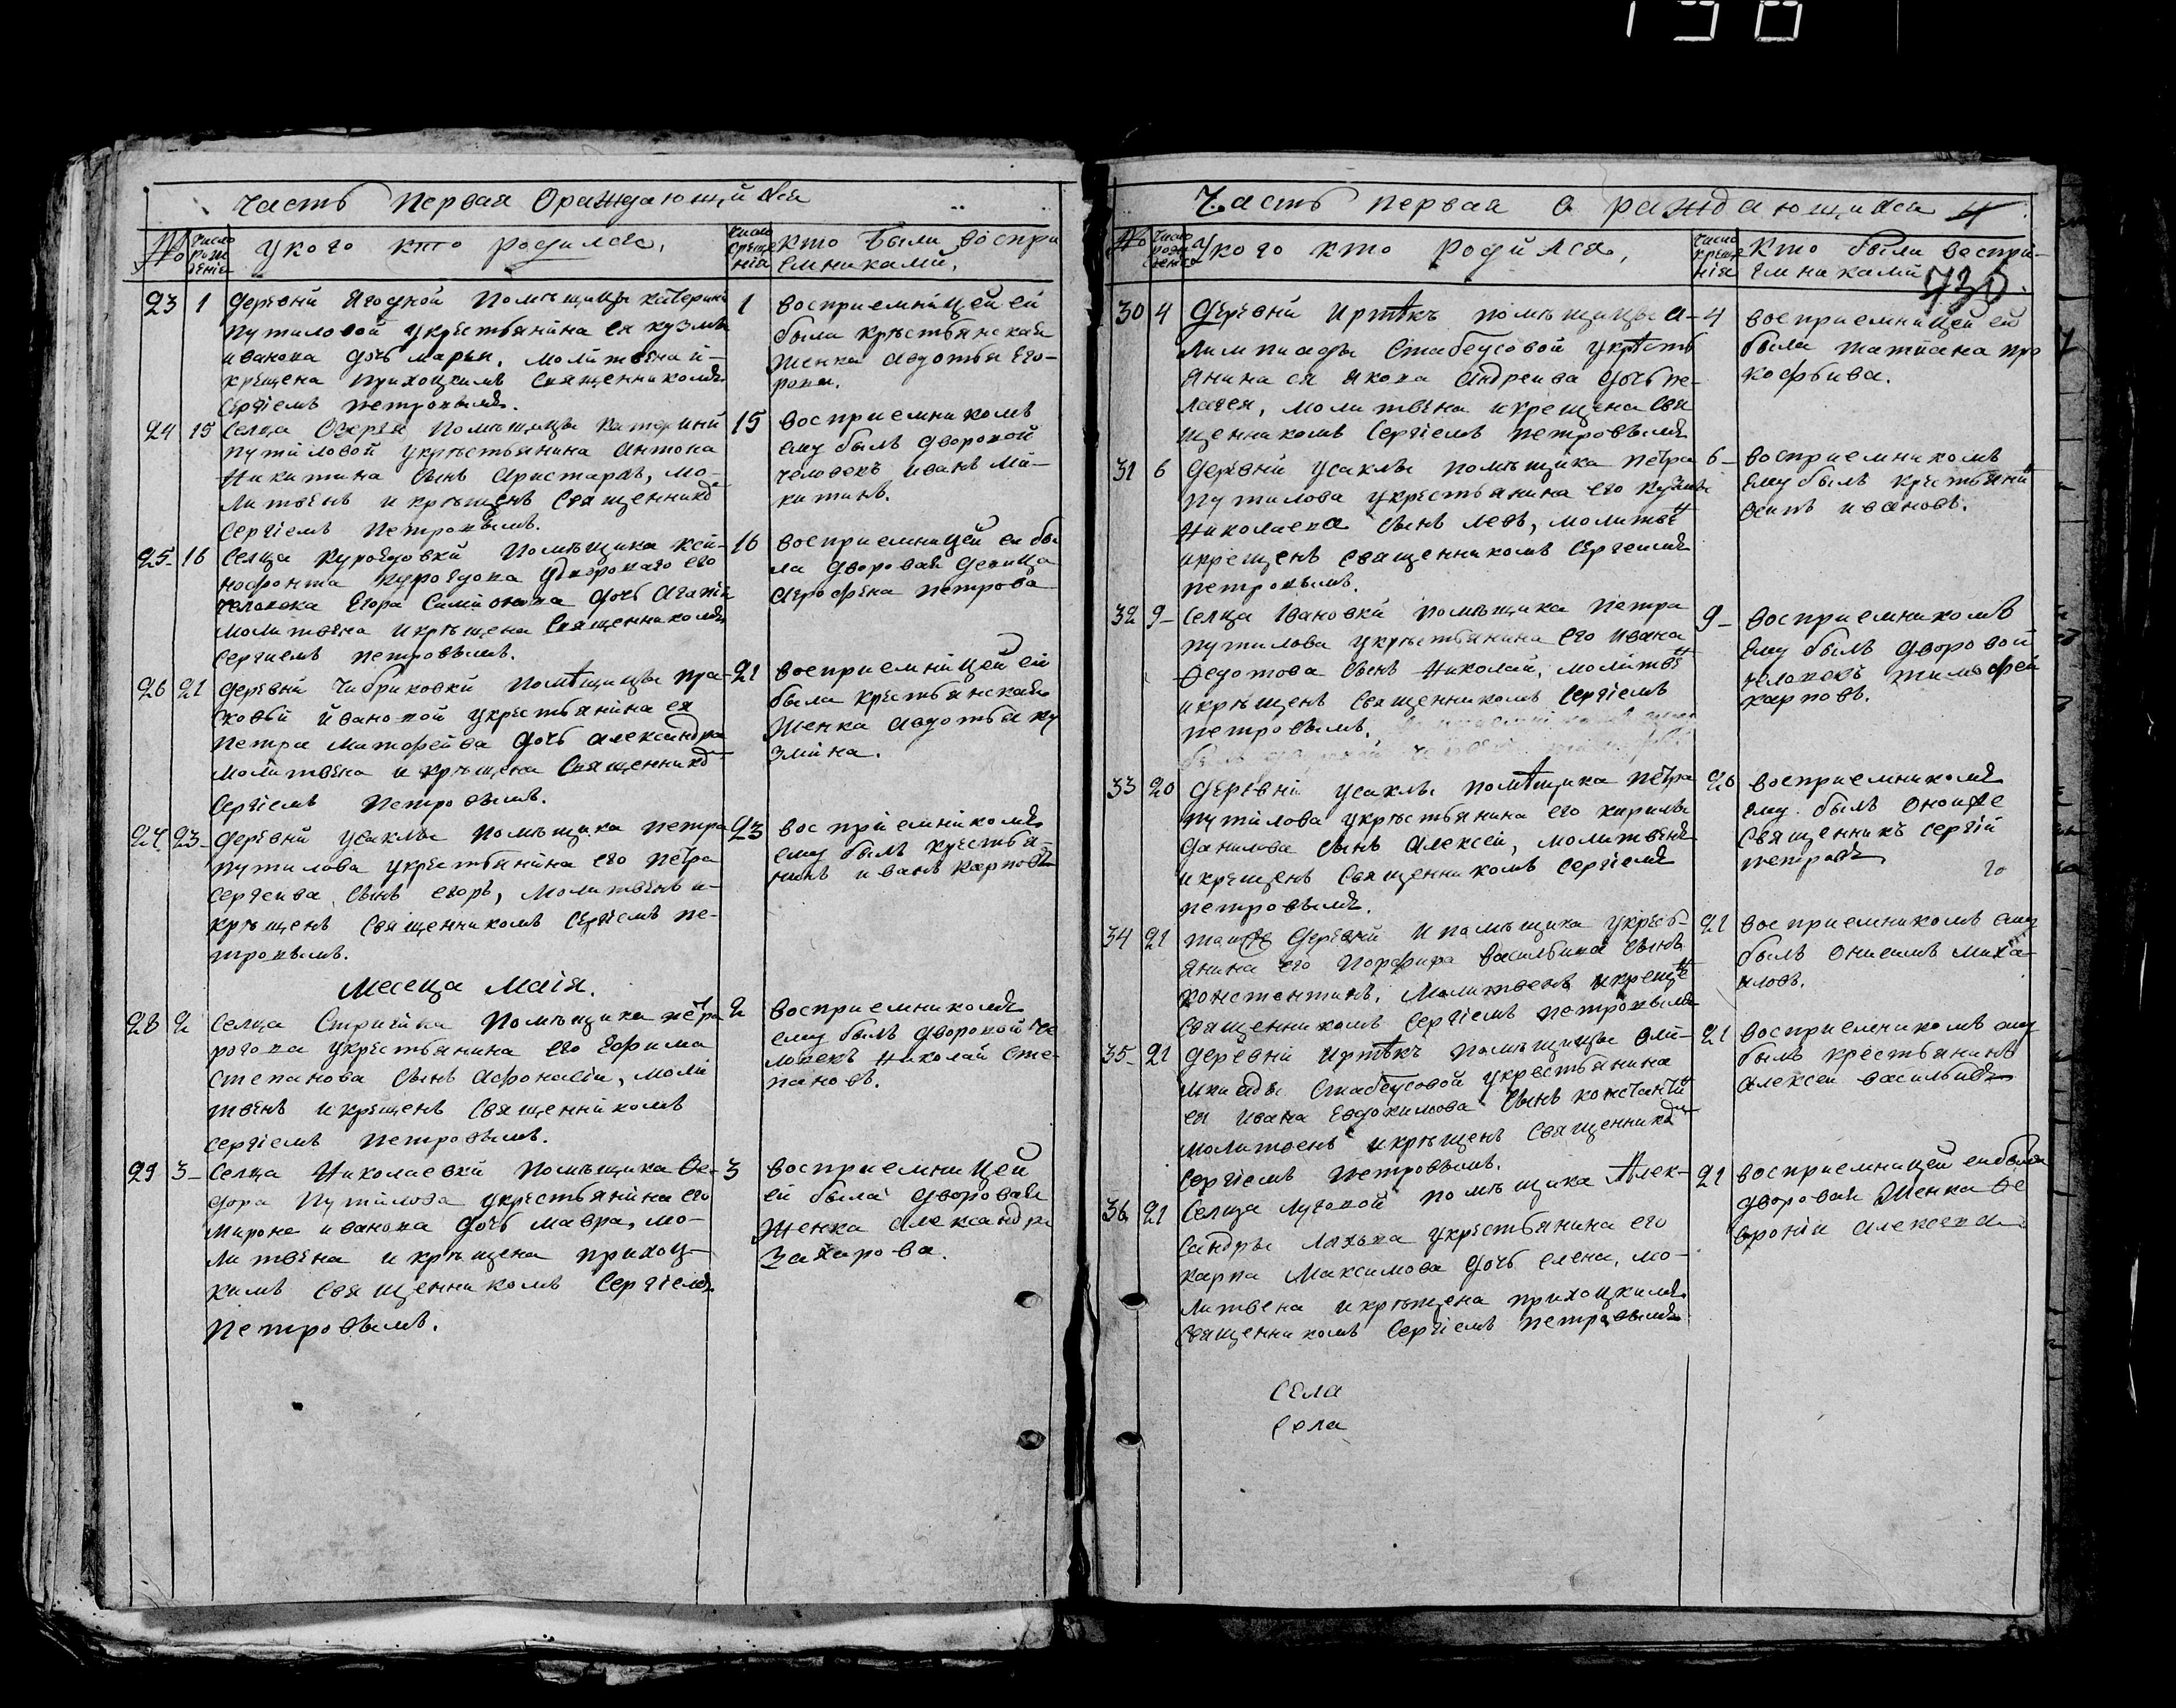 Часть первая О раждающийхся
№ число рождения
у кого кто родился,
число крещения
кто были воспри
емниками.
23 1 Деревни Ягодной помѣщицы катерины
путиловой укрестьянина ея кузмы
иванова дочь марья, молитвена и
крещена приходскимъ священникомъ
Сергіемъ петровымъ.
1 восприемницей ей
была крестьянская
женка авдотья Его-
рова.
24 15 Селца Озерея помѣщицы катерины
путиловой укрестьянина антона
Никитина сынъ аристархъ, мо-
литвенъ и крѣщенъ священнико
Сергіемъ петровымъ.
15 восприемникомъ
ему былъ дворовой
человекъ иванъ Ми-
китинъ.
25 16 Селца куроѣдовки помѣщика ксе-
нофонта куроѣдова удвороваго его
человека Егора Симионова дочь агапия
молитвена и крѣщена священникомъ
Сергиемъ петровымъ.
16 восприемницей ей бы
ла дворовая девица
аграфена петрова
26 21 деревни Чибриковки помѣщицы пра-
сковьи ивановой укрестьянина ея
петра матфеива дочь александра
молитвена и крѣщена священнико
Сергіемъ петровымъ.
21 восприемницей ей
была крестьянская
женка авдотья ку
змина.
27 23 деревни усаклы помѣщика петра
путилова укрестьянина его петра
Сергеива сынъ егоръ, молитвенъ и-
крѣщенъ священникомъ Сергіемъ пе-
тровымъ.
23 восприемникомъ
ему былъ крестья-
нинъ иванъ карповъ
Месеца Маія.
28 2 Селца помѣщика петра
рогова укрестьянина его Ефима
степанова сынъ афонасіи, моли
твенъ и крещенъ священникомъ
Сергіемъ петровымъ.
2 восприемникомъ
ему былъ дворовой че
ловекъ Николай сте-
пановъ.
29 3 Селца Николаевки помѣщика Фе-
дора путилова укрестьянина его
мирона иванова дочь мавра, мо-
литвена и крѣщена приход-
кимъ священникомъ Сергіемъ
петровымъ.
3 восприемницей
ей была дворовая
женка александра
Захарова.
Часть первая О раждающихся
№ Число рождения
Укого кто родился,
Число крещения
Кто были воспри-
емниками
730
30 4 Деревни Иртѣкъ помѣщицы а-
лимпиады Стабеусовой укрѣсть
янина ея якова андреива дочь пе-
лагея, молитвена и крещена свя
щенникомъ Сергіемъ петровымъ
4 восприемницей ей
была татиана про
кофьива.
31 6 деревни усаклы помѣщика петра
путилова укрестьянина его кузмы
Николаева сынъ левъ, молитве
и крещенъ священникомъ Сергеимъ
петровымъ.
6 восприемникомъ
ему былъ крестьяни
осипъ ивановъ.
32 9 Селца Ивановки помѣщика петра
путилова укрестьянина его ивана
Федотова сынъ Николай, молитве
и крѣщенъ священникомъ Сергіемъ
петровымъ.
9 восприемникомъ
ему былъ дворовой
человекъ тимофей
карповъ.
33 20 деревни усаклы помѣщика петра
путилова укрестьянина его кирилы
данилова сынъ алексей, молитвенъ
и крещенъ священникомъ Сергіемъ
петровымъ.
20 восприемникомъ
ему былъ оной же
священникъ Сергій
петровъ
34 21 той же деревни и помѣщика укресть-
янина его порфира васильива сынъ
константинъ, молитвенъ и креще
священникомъ Сергіемъ петровымъ
21 восприемникомъ ему
былъ онисимъ миха-
иловъ.
35 21 деревни Иртѣкъ помѣщицы оли-
мпиады Стабеусовой укрестьянина
ея ивана Евдокимова сынъ константи
молитвенъ и крѣщенъ священнико
Сергіемъ петровымъ.
21 восприемникомъ ему
былъ крестьянинъ
алексеи васильивъ
36 21 Селца Луговой помѣщика алек-
сандры укрестьянина его
карпа Максимова дочь елена, мо-
литвена и крѣщена приходкимъ
священникомъ Сергіемъ петровымъ
21 восприемницей ей была
дворовая женка Фе
вронія алексева
Села
Села